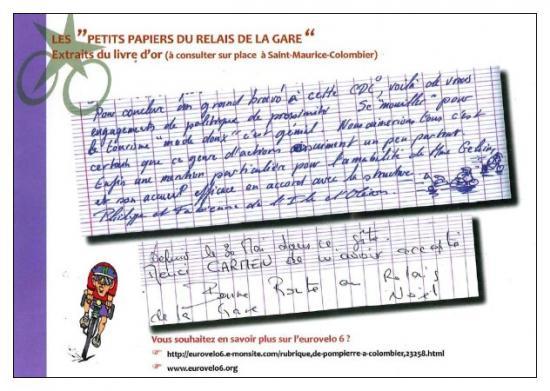 LES "PETITS PAPIERS DU RELAIS DE LA GARE"
Extraits du livre d'or (à consulter sur place à Saint-Maurice-Colombier)
"Pour conclure un grand bravo à cette CDC, voilà de vrais
engagements de politique de proximité. Se mouiller" pour
le tourisme "mode doux" c'est génial. Nous aimerions tous c'est
certain que ce genre d'actions un peu partout
Enfin une mention particulière pour l'amabilité de Mme
et son accueil efficace en accord avec la structure
Philippe et de l'Ile et Oléron
le 30 Mai dans ce gîte
Merci CARMEN de m'avoir accepté
Bonne Route au Relais
de la Gare Noël
Vous souhaitez en savoir plus sur l'eurovelo 6 ?
http://eurovelo6.e-monsite.com/rubrique,de-pompierre-a-colombier,23258.html
www.eurovelo6.org